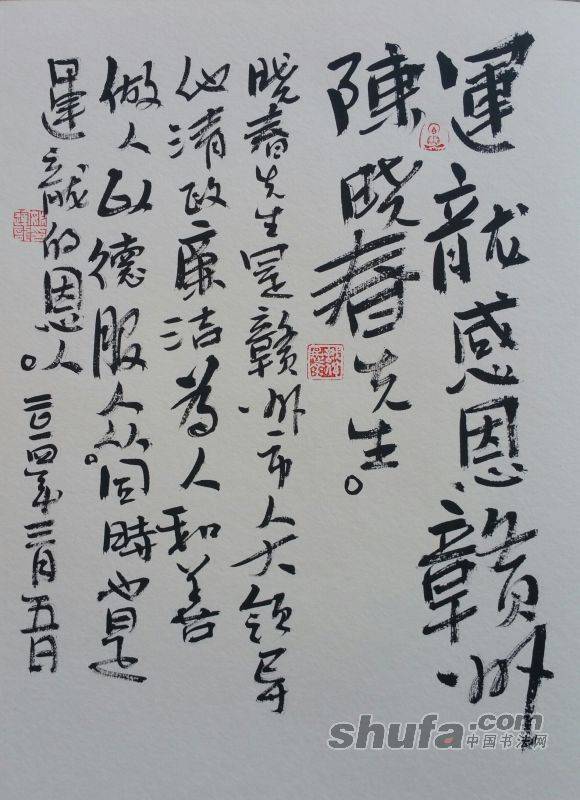 運龍感恩贛州
陳晓春先生。
晓春先生是贛州市人大领导
他清政廉洁為人和善
做人以德服众。同時也是
運龍的恩人。二〇一四年三月五日
shufa.com
中国书法网